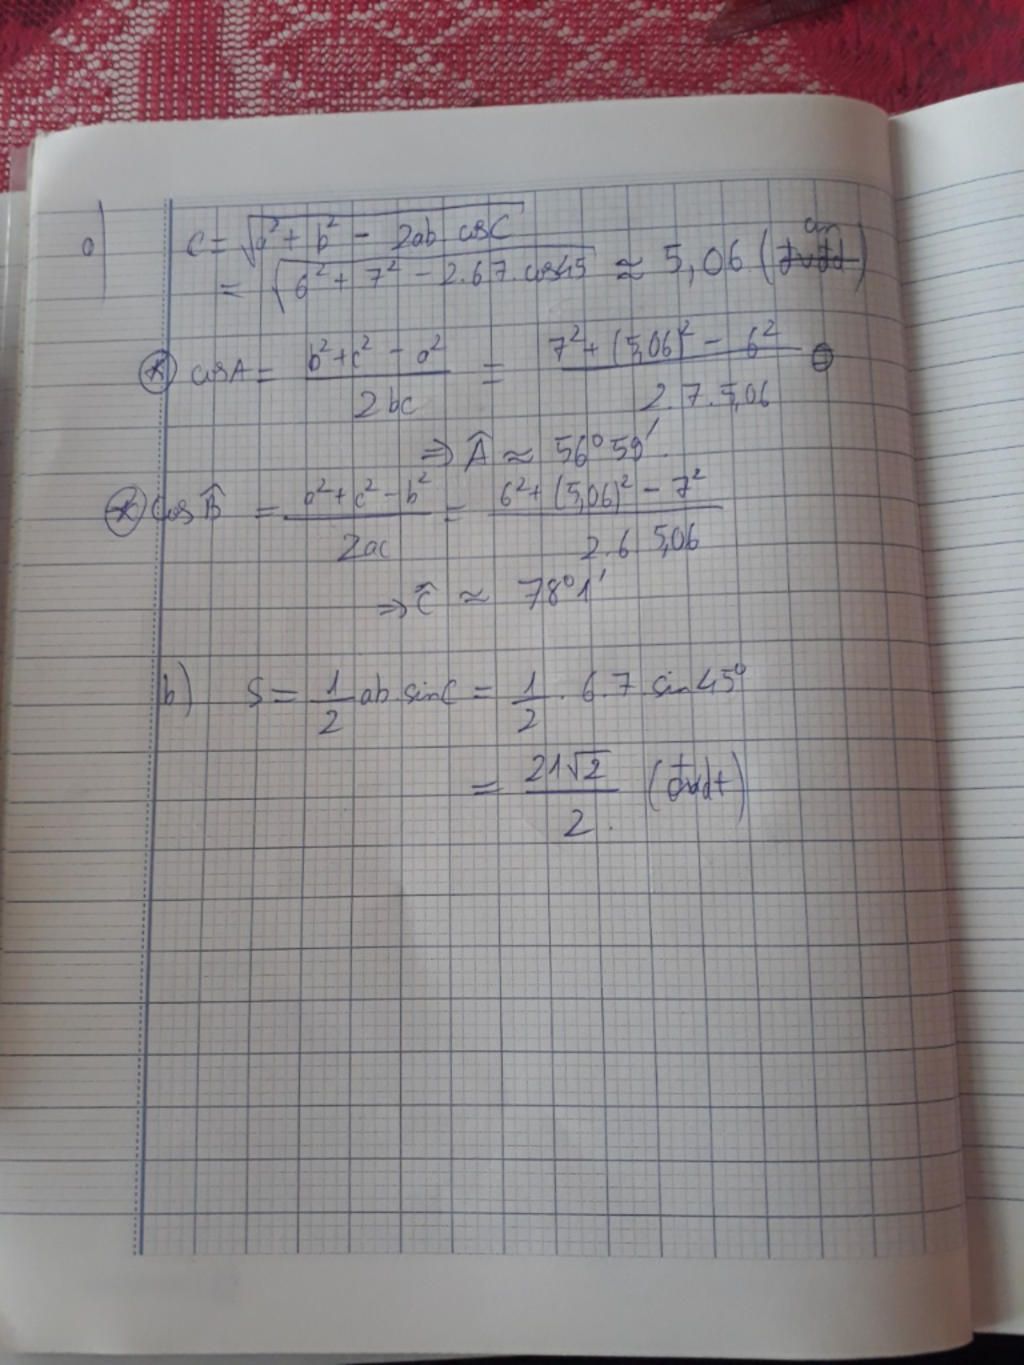 a)
c = √(a² + b² - 2ab cosC)
= √(6² + 7² - 2.6.7.cos45) ≈ 5,06 (
⊛ cosA = (b² + c² - a²)/(2bc) = (7² + (5,06)² - 6²)/(2.7.5,06)
⇒ Â ≈ 56°59'.
⊛ cos B̂ = (a² + c² - b²)/(2ac) = (6² + (5,06)² - 7²)/(2.6 5,06)
⇒ Ĉ ≈ 78°1'
b) S = 1/2 ab sinC = 1/2 . 6.7 sin45°
= 21√2/2. (đvdt)